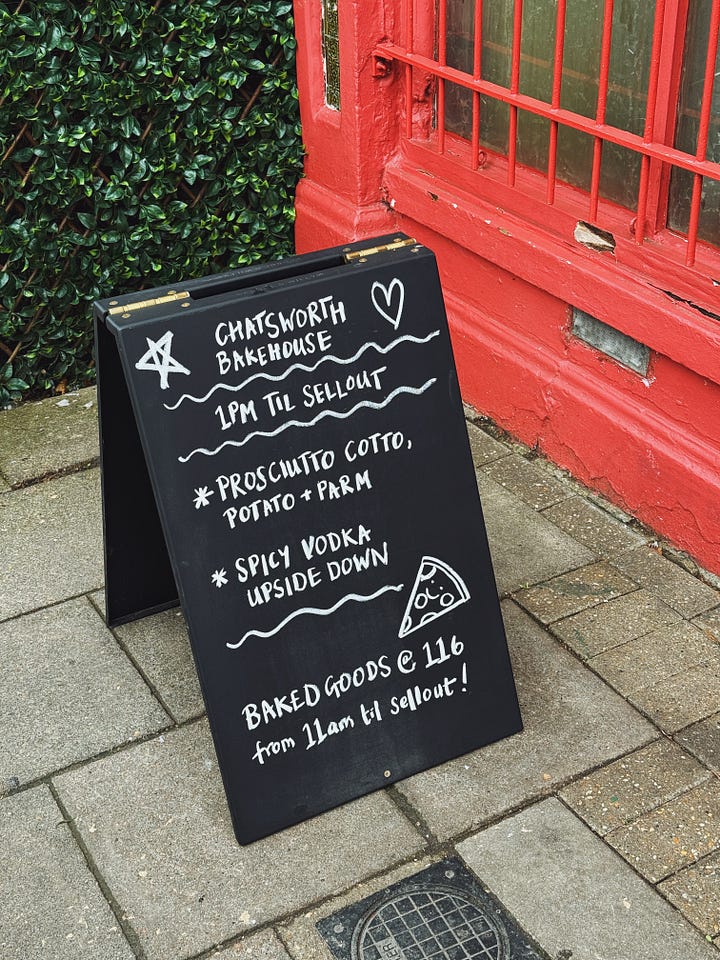 CHATSWORTH
BAKEHOUSE
1PM TIL SELLOUT
*PROSCIUTTO COTTO,
POTATO + PARM
* SPICY VODKA
UPSIDE DOWN
BAKED GOODS @ 116
from 11am til sellout!